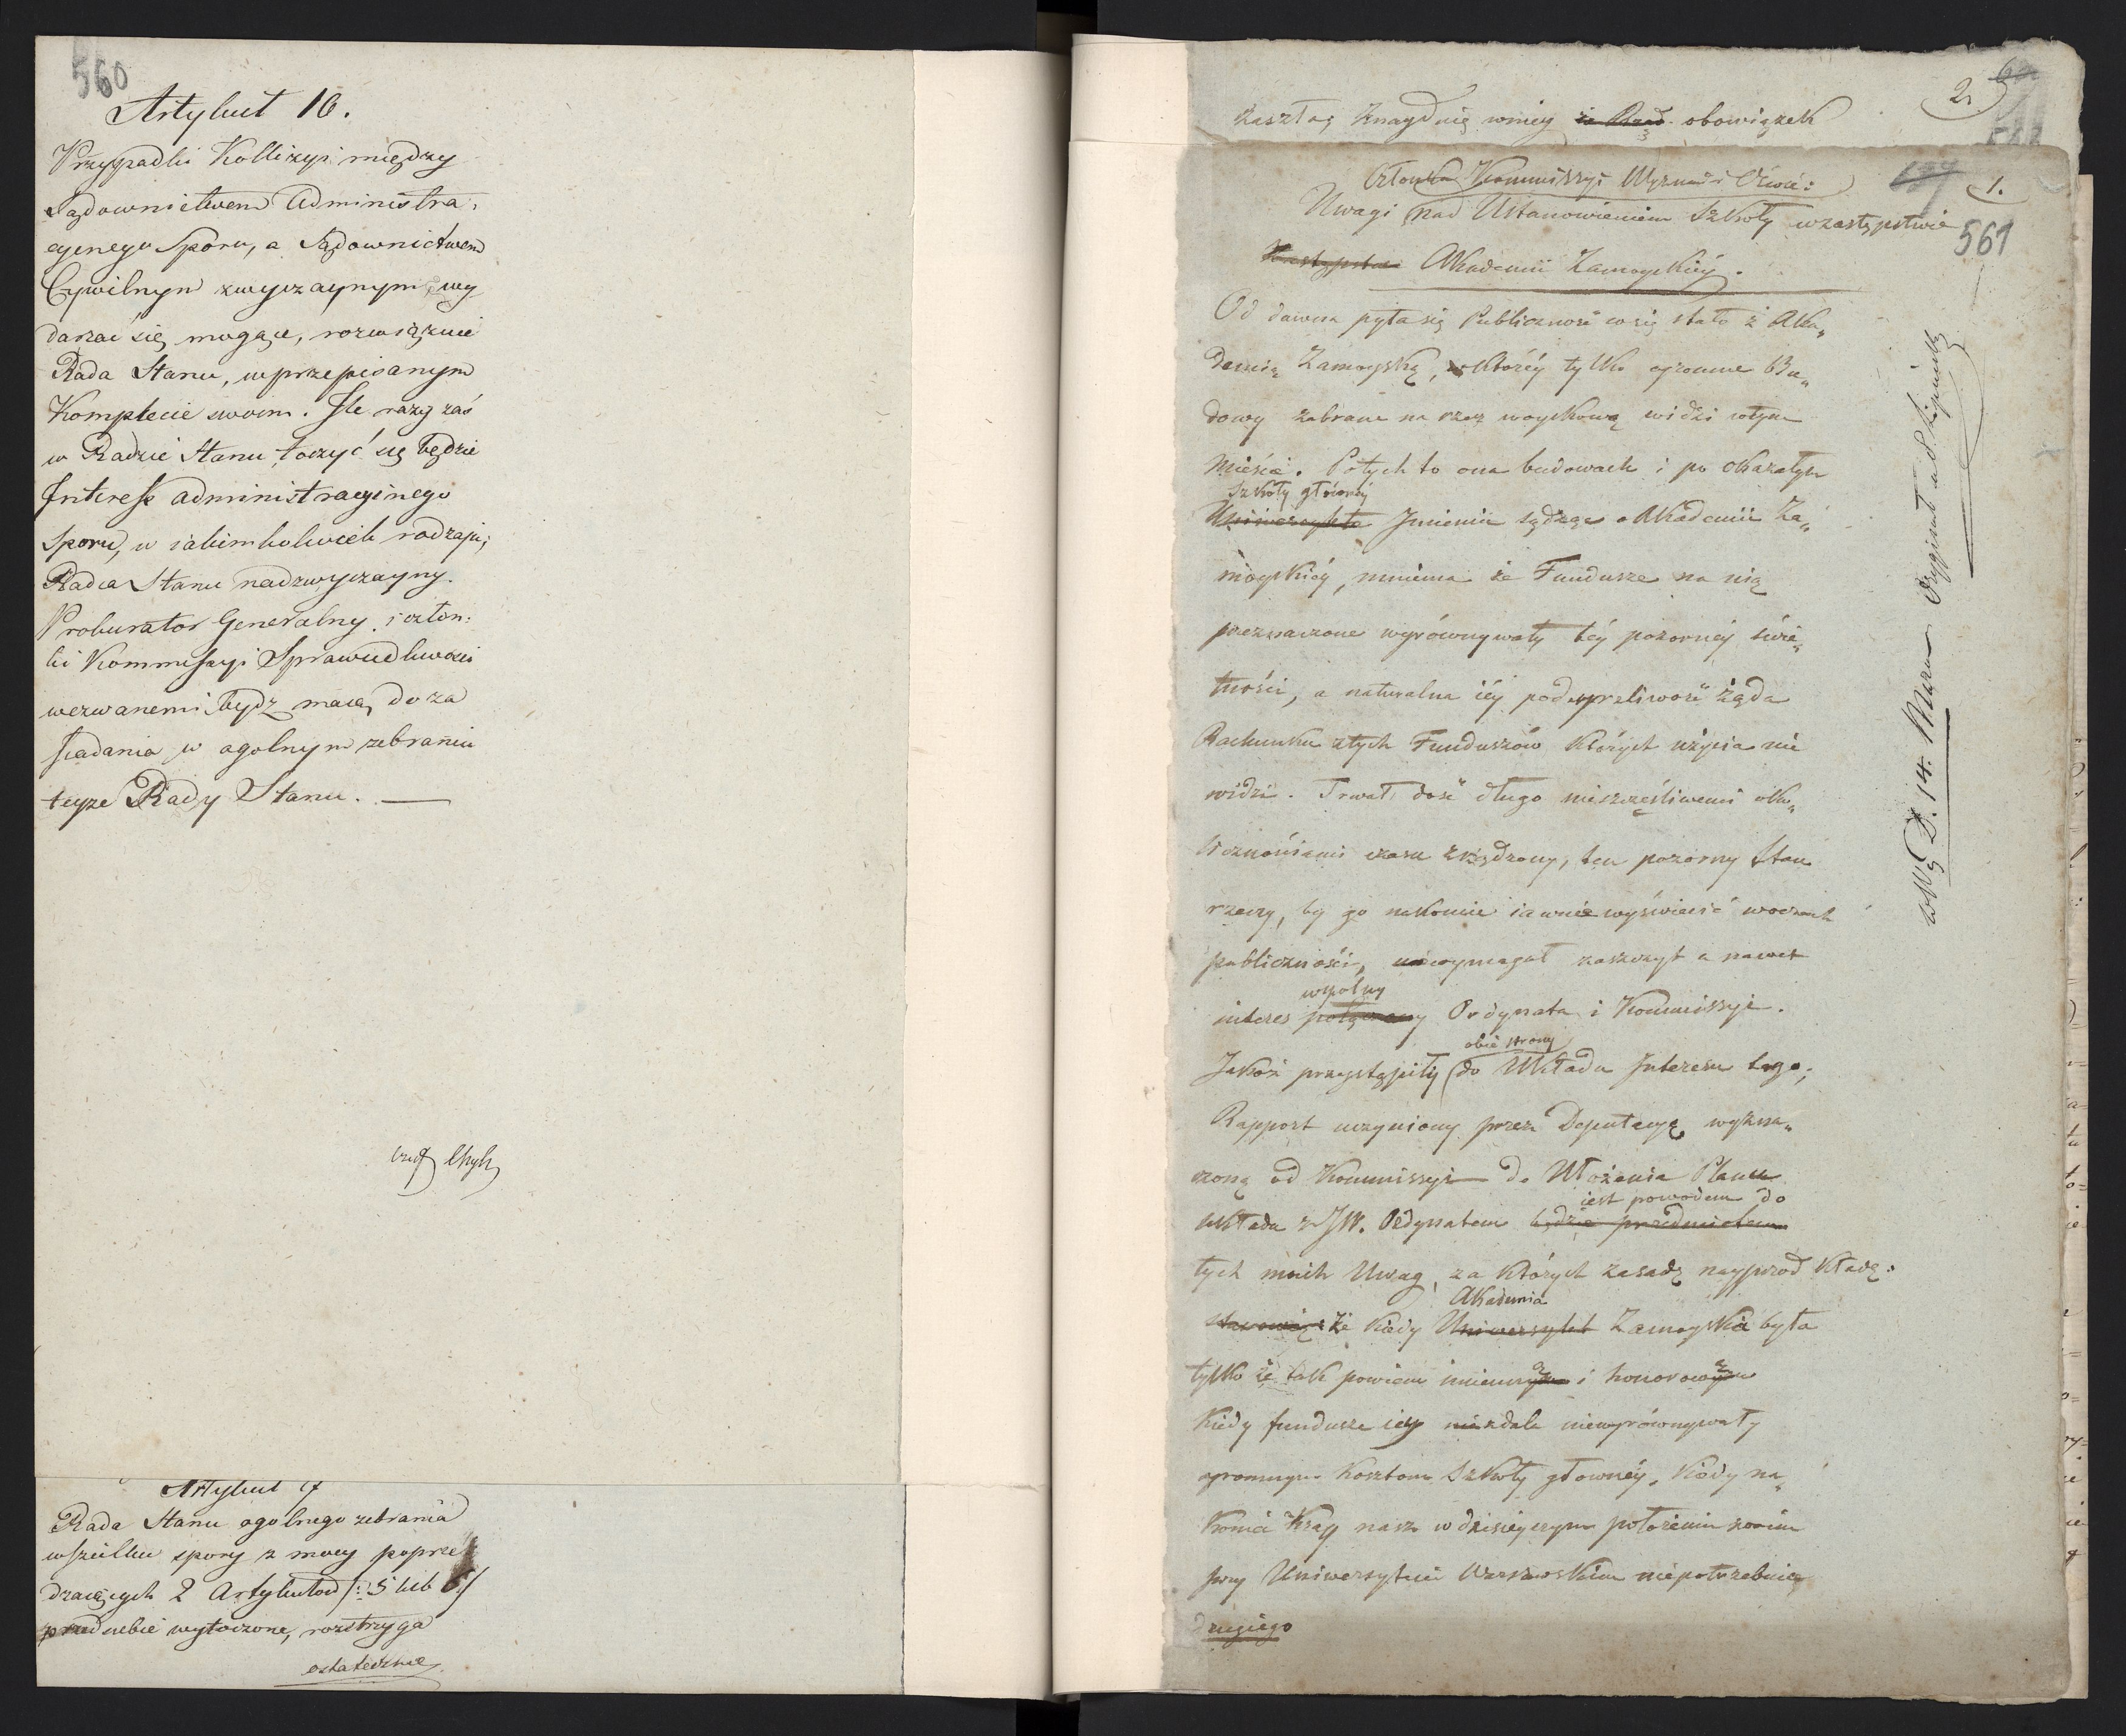 560
Artykuł 16.
Przypadki Kollizyi między
Sądownictwem Administra,
cyinego Sporu, a Sądownictwem
Cywilnym zwyczaynym, wy
darzać się mogące, rozwiązuie
Rada Stanu, w przepisanym
Komplecie swoim. Ile razy zaś
w Radzie Stanu toczyć się będzie
Interess administracyinego
Sporu, w iakimkolwiek rodzaju;
Radca Stanu nadzwyczayny
Prokurator Generalny i człon:
ki Kommissyi Sprawiedliwości
wezwanemi bydź maią do za
siadania w ogolnym zebraniu
teyże Rady Stanu. —
Artykuł 17
Rada Stanu ogolnego zebrania
wszelkie spory z mocy poprze
dzaiących 2 Artykułow /: 5 lub 6 :/
przed siebie wytoczone, rozstrzyga
ostatecznie
2.
zaszłą; znayduię w niey że Rząd obowiązek
1.
561
Członka Kommissyi Wyznań i Oświe:
Uwagi nad Ustanowieniem Szkoły w zastępstwie
Zastępstwie Akademii Zamoyskiéy.
Od dawna pyta się Publiczność co się stało z Aka„
demią Zamoyską, któréy tylko ogromne Bu„
dowy zabrane na rzecz woyskową widzi w tym
Mieście. Po tych to ona budowach i po okazałym
Szkoły główney
Uniwersytetu Imieniu sądząc o Akademii Za„
moyskiéy, mniema że Fundusze na nią
przeznaczone wyrównywały téy pozornéy świe„
tności, a naturalna iéy podeyrzliwość żąda
Rachunku z tych Funduszów których użycia nie
widzi. Trwał dość długo nieszczęśliwemi oko„
licznościami czasu zrządzony, ten pozorny Stan
rzeczy, by go nakoniec iawnie wyświecić w oczach
publiczności, wymagał zaszczyt a nawet
wspolny
interes połączony Ordynata i Kommissyi.
obie strony
Jakoż przystąpiły do Układu Interesu tego;
Rapport uczyniony przez Deputacyą wyzna„
czoną od Kommissyi do Ułożenia Planu
iest powodem do
układu z JW. Ordynatem będzie przedmiotem
tych moich Uwag, za których zasadę nayprzod kładę:
Akademia
że kiedy Uniwersytet Zamoyska była
tylko że tak powiem imienną i honorową
kiedy fundusze iey zdala niewyrównywały
ogromnym kosztom Szkoły głownéy. Kiedy na„
koniec Kray nasz w dzisieyszym położeniu swoim
przy Uniwersytecie Warszawskim niepotrzebuie
drugiego
W W D. 14. Marca Oryginał